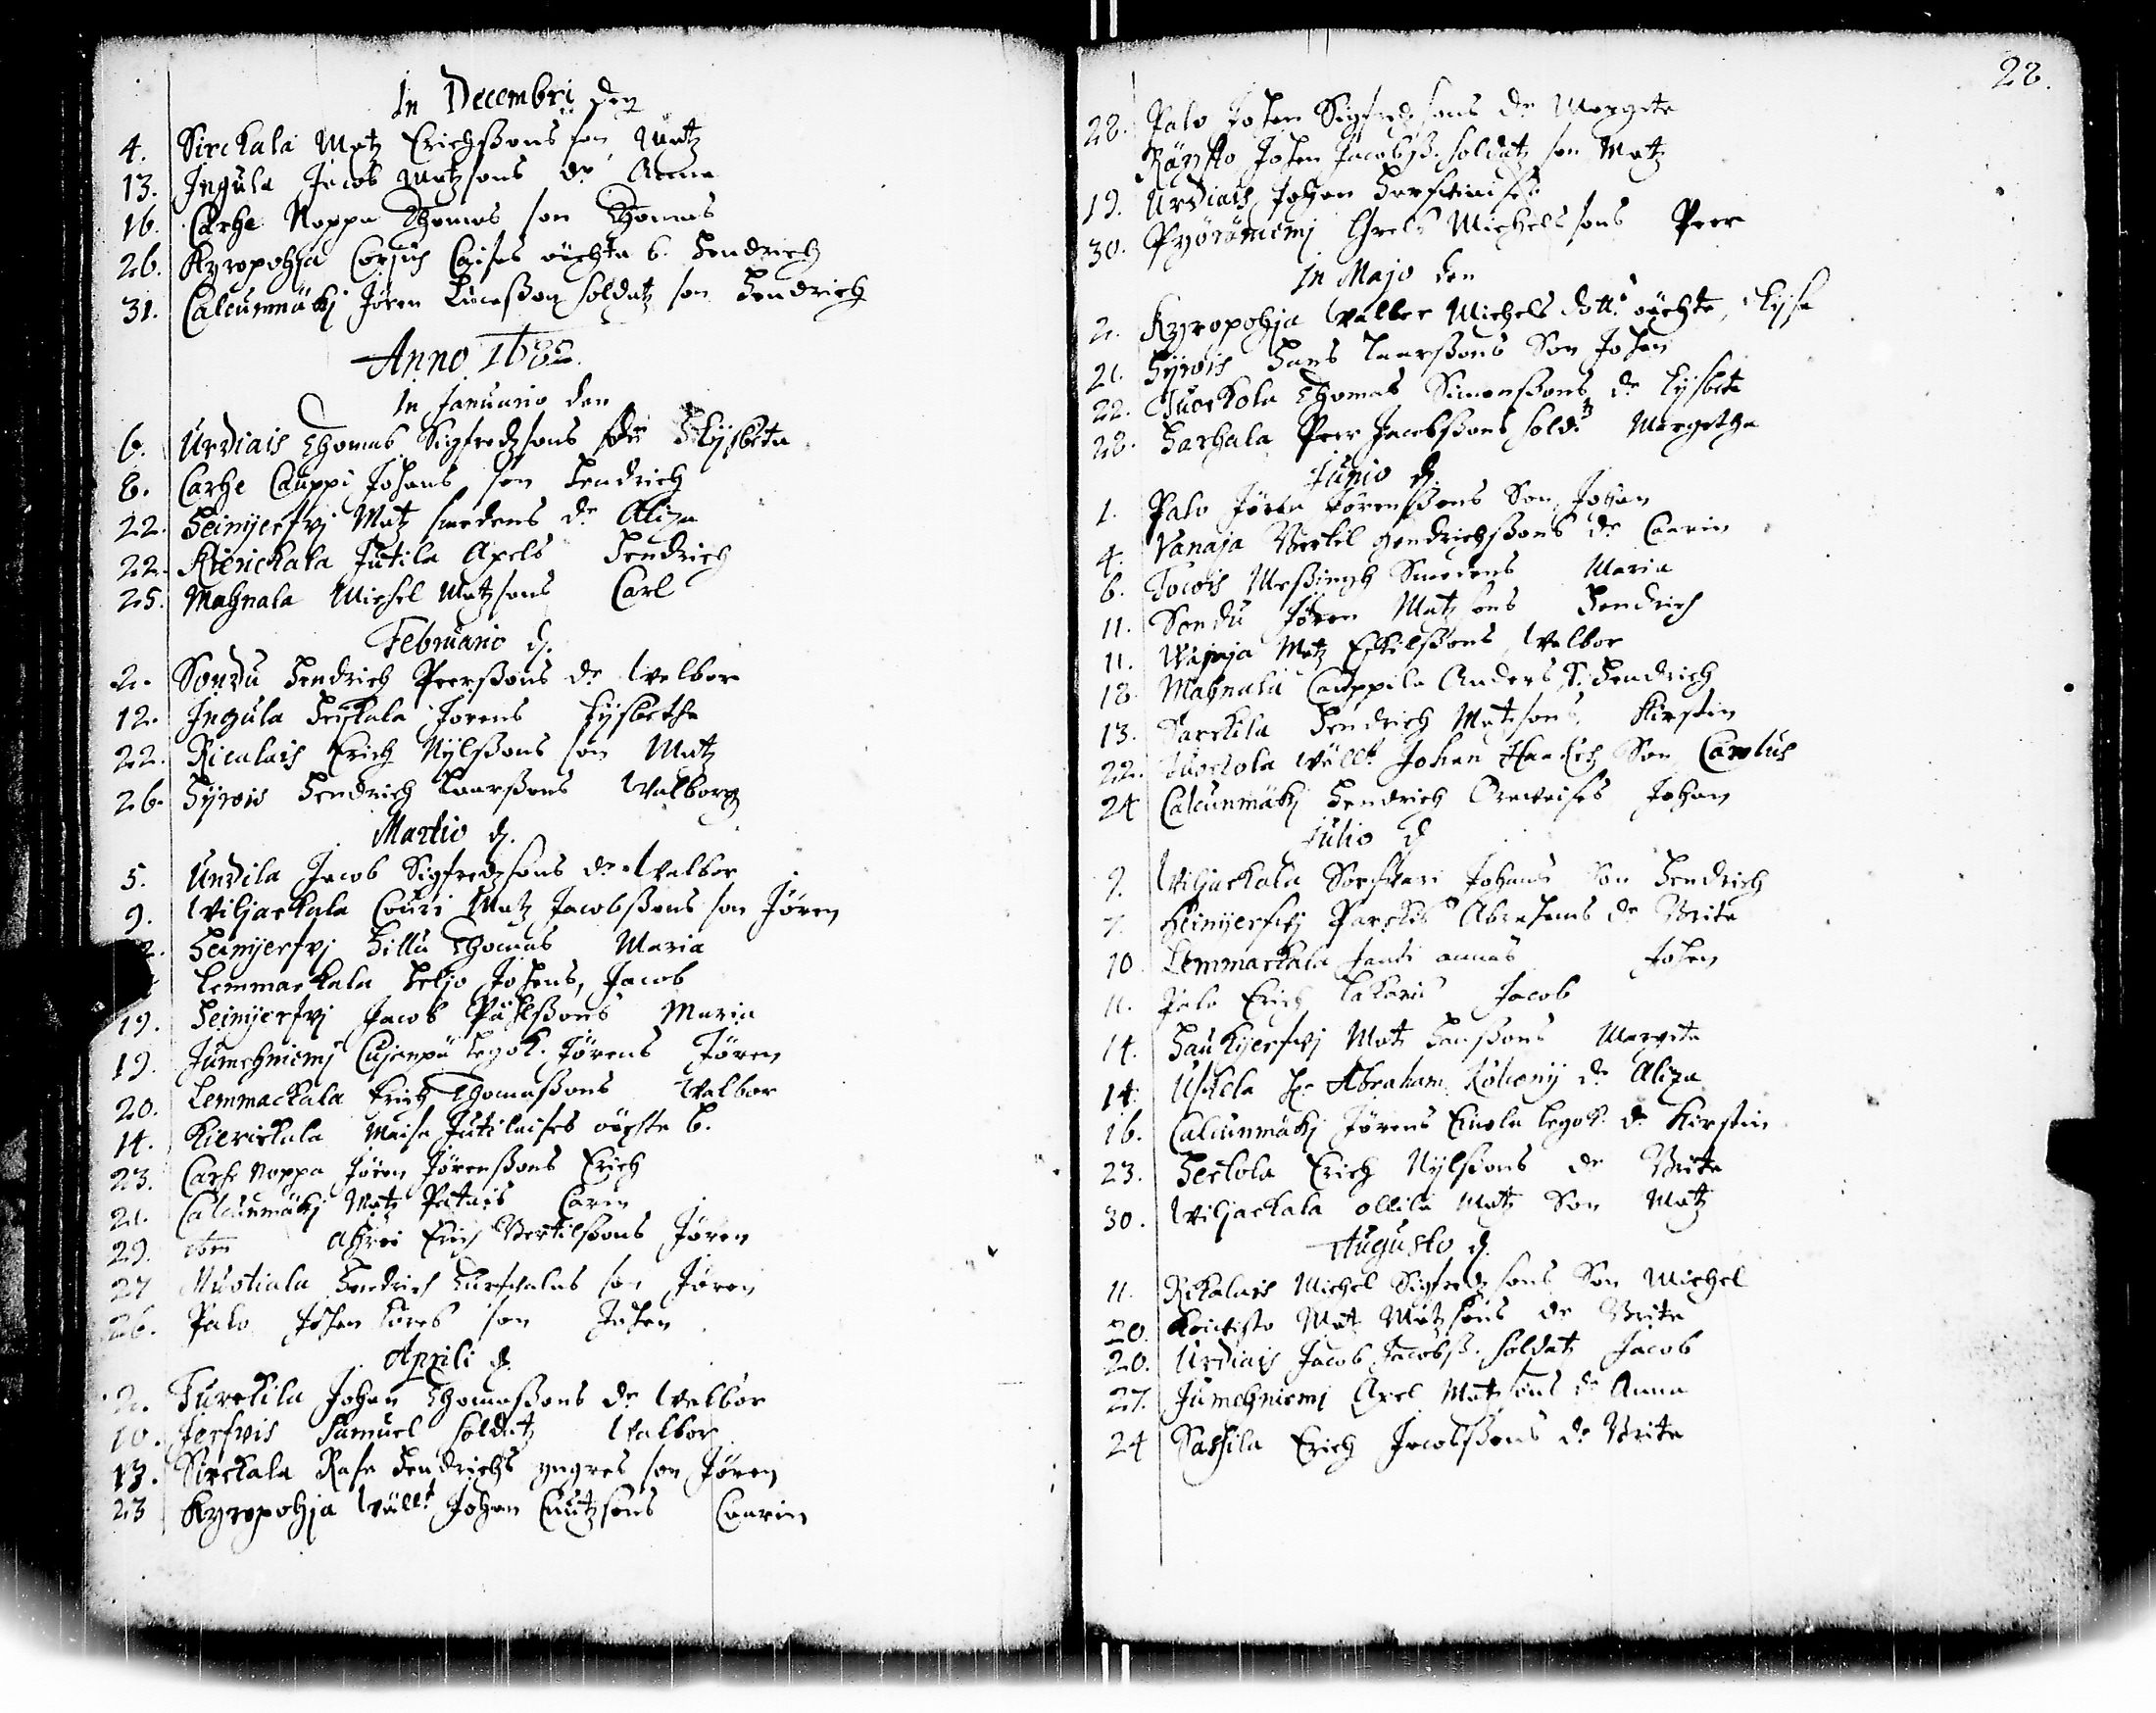 In Decembri den
4. Sirckala Matz Erichssons son Matz
13. Ingula Jacob Matzsons dr Anna
16. Carhe Noppa Thomas son Thomas
26. Kyropohja Corpus Caisas oächta b. Hendrich
31. Calcunmäkj Jören Lucasson soldatz son Hendrich
Anno 1682.
In Januario den
6. Urdiais Thomas Sigfredzsons dr Elysbeta
8. Carhe Cauppi Johans son Hendrich
22. Heinijerfvj Matz smedens dr Aliza
22. Kierickala Jutila Axels Hendrich
25. Mahnala Michel Matzsons Carl
Februario d.
2. Sondu Hendrich Peerssons dr Walbor
12. Ingula Heickala Jörens Lysbetha
22. Ricalais Erich Nylssons son Matz
26. Hyrois Hendrich Laarssons Walborg
Martio d.
5. Undila Jacob Sigfredzsons dr Walbor
9. Wiljackala Couri Matz Jacobssons son Jören
2. Heinijerfvj Hillu Thomas Maria
Lemmackala Heljo Johans, Jacob
19. Heinijerfvj Jacob Påhlssons Maria
19. Jumehniemj Cujanpä legok. Jörens Jören
20. Lemmackala Erich Thomassons Walbor
14. Kierickala Maisa Jutilaises oächta b.
23. Carhe Noppa Jören Jörenssons Erich
21. Calcunmäkj Matz Patais Carin
29. ibm Ahrå Erich Bertilssons Jören
27 Mustiala Hendrich Lurschalas son Jören
26. Palo Johan Lores son Johan
Aprili d.
2. Turckila Johan Thomassons dr Walbor
10. Jerfvis Samuel soldatz Walbor
13. Sirckala Rasa Hendrichs yngres son Jören
23 Kyropohja Wällt Johan Cnutzsons Caarin
28.
28. Palo Johan Sigfredzsons dr Margeta
Räystö Johan Jacobss. soldatz son Matz
19. Urdiais Johan
30. Pyöräniemj Grels Michelssons Peer
In Majo den
2. Kyropohja Waller Michels dottr oächte, Elysa
21. Hyrois Hans Laarssons Son Johan
22. Tuockola Thomas Simonssons dr Lysbeta
28. Harhala Peer Jacobssons soldtz Margetha
Junio d.
1. Palo Jören Jörenssons Son Johan
4. Vanaja Bertel Hendrichssons dr Caarin
6. Tocois Messingh Smedens Maria
11. Sondu Jören Matzsons Hendrich
11. Wanaja Matz Eskilssons Walbor
18. Mahnala Cauppila Anders S. Hendrich
13. Sarckila Hendrich Matzsons Kirstin
22. Tuockola Wällt Johan Son Carolus
24 Calcunmäkj Hendrich Johan
Julio d
9. Wiljackala Sorfvari Johans Son Hendrich
7. Heinijerfvj Abrahams dr Brita
10. Lemmackala Johan
11. Palo Erich Jacob
14. Haukijerfvj Matz Hanssons Margeta
14. Uskela Hr Abraham dr Aliza
16. Calcunmäkj Jörens legok. dr Kirstin
23. Herttola Erich Nylssons dr Brita
30. Wiljackala Ollila Matz Son Matz
Augusto d.
11. Rikalais Michel Sigfredzsons Son Michel
20. Koivisto Matz Matzsons dr Brita
20. Urdiais Jacob Jacobss. soldatz Jacob
27. Jumehniemj Axel Matzsons dr Anna
24 Sassila Erich Jacobssons dr Brita